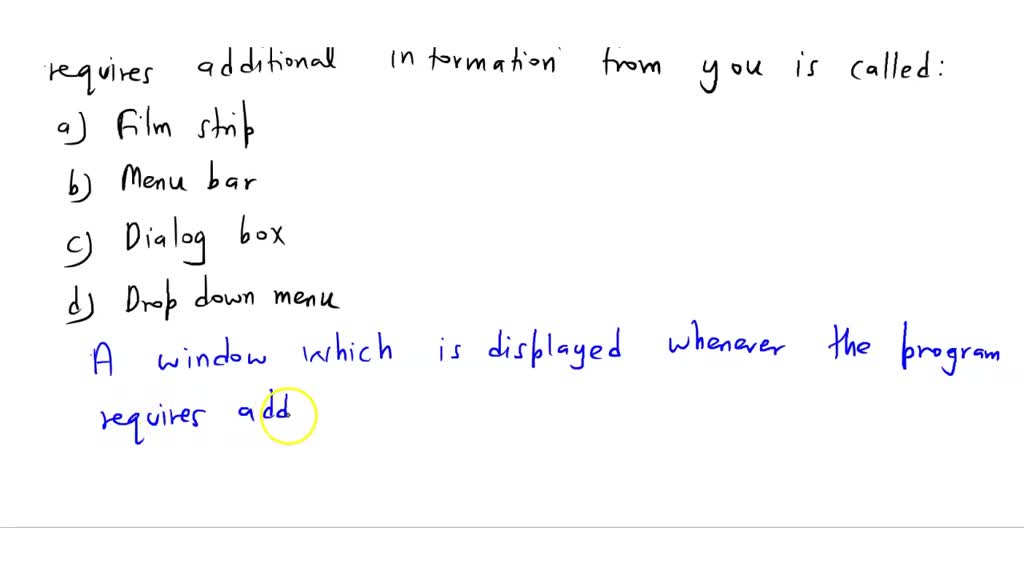 requires additional information from you is called:
a) Film strip
b) Menu bar
c) Dialog box
d) Drop down menu
A window which is displayed whenever the program
requires add